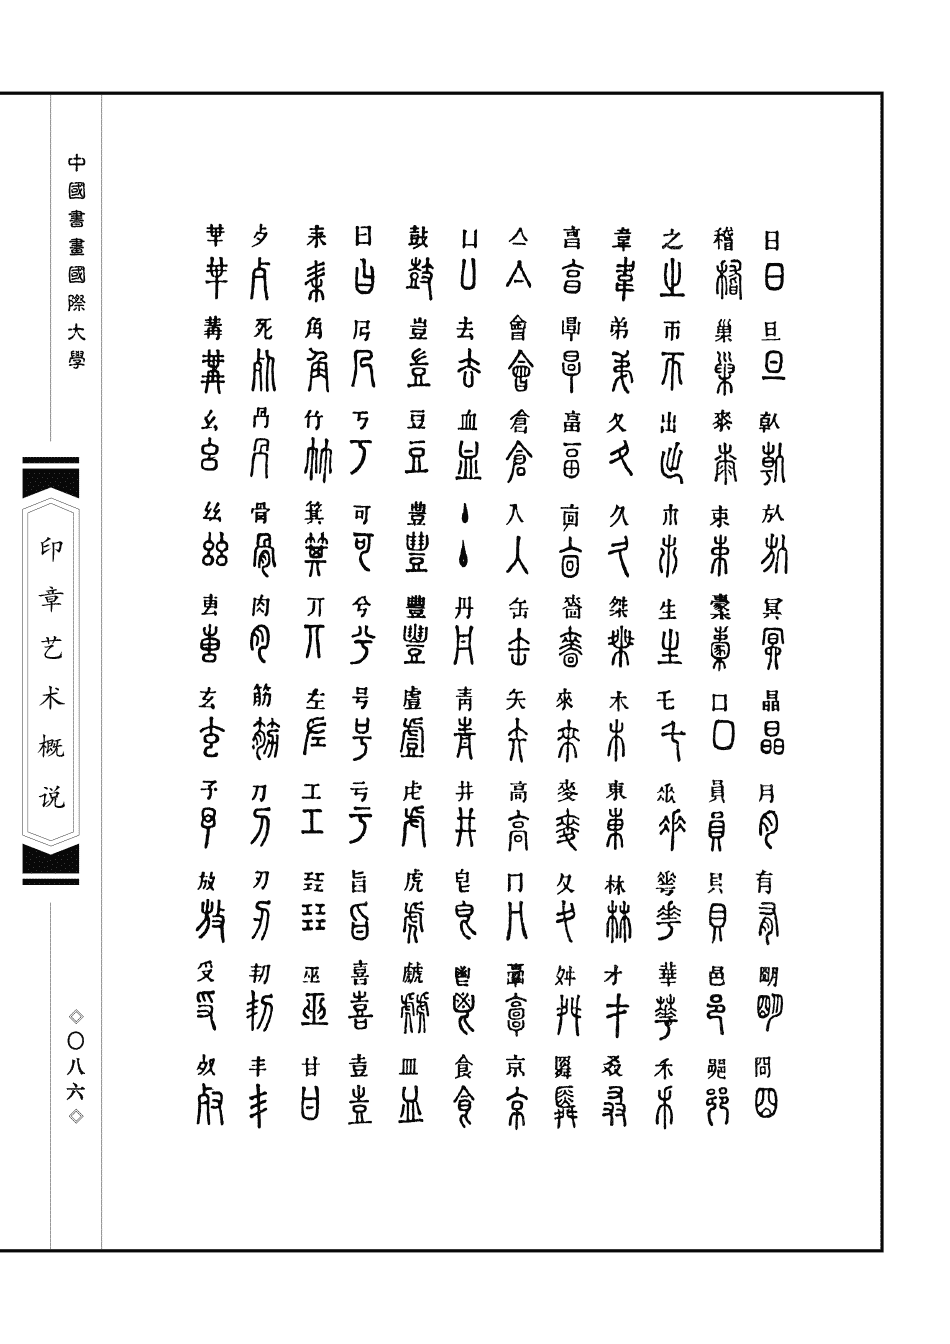 日旦倝㫃冥晶月有朙冏
稽巢桼束㯻口員貝邑𨛜
之帀出朩生乇𠂹𠌶華禾
韋弟夂久桀木東林才叒
亯畗㐭嗇來麥夊舛
亼會倉入缶矢高冂京
凵去血丶丹青井皀鬯食
鼓豈豆豊豐䖒虍虎虤皿
曰丂可兮号亏旨喜壴
耒角竹箕丌左工㠭巫甘
歺死冎骨肉筋刀刃㓞丰
冓幺丝叀玄予放受𣦼
中國書畫國際大學
印章艺术概说
〇八六